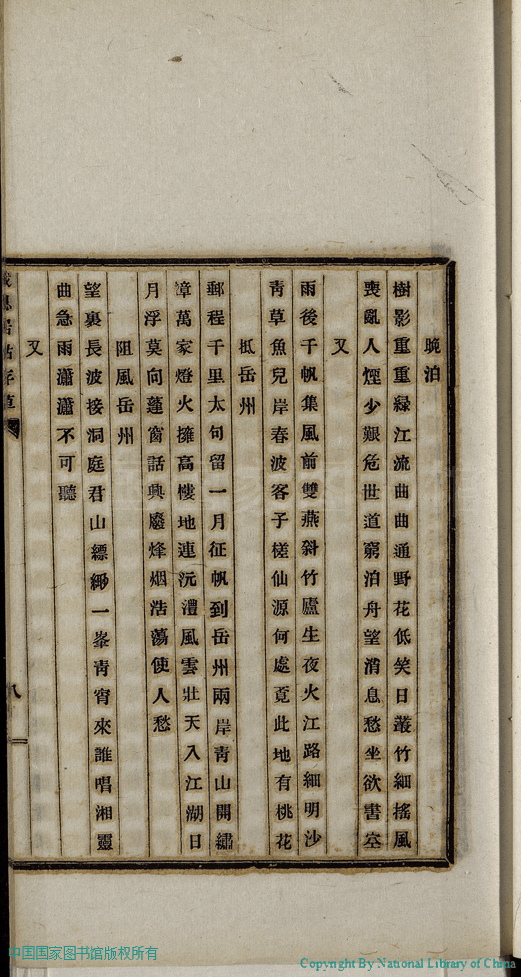 晚泊
樹影重重綠江流曲曲通野花低笑日叢竹細搖風
喪亂人煙少艱危世道窮泊舟望消息愁坐欲書空
又
雨後千帆集風前雙燕斜竹廬生夜火江路細明沙
青草魚兒岸春波客子槎仙源何處竟此地有桃花
抵岳州
郵程千里太句留一月征帆到岳州兩岸青山開繡
嶂萬家燈火擁高樓地連沅澧風雲壯天入江湖日
月浮莫向蓬窗話興廢烽烟浩蕩使人愁
阻風岳州
望裏長波接洞庭君山縹緲一峯青宵來誰唱湘靈
曲急雨瀟瀟不可聽
又
八
中国国家图书馆版权所有
Copyright By National Library of China